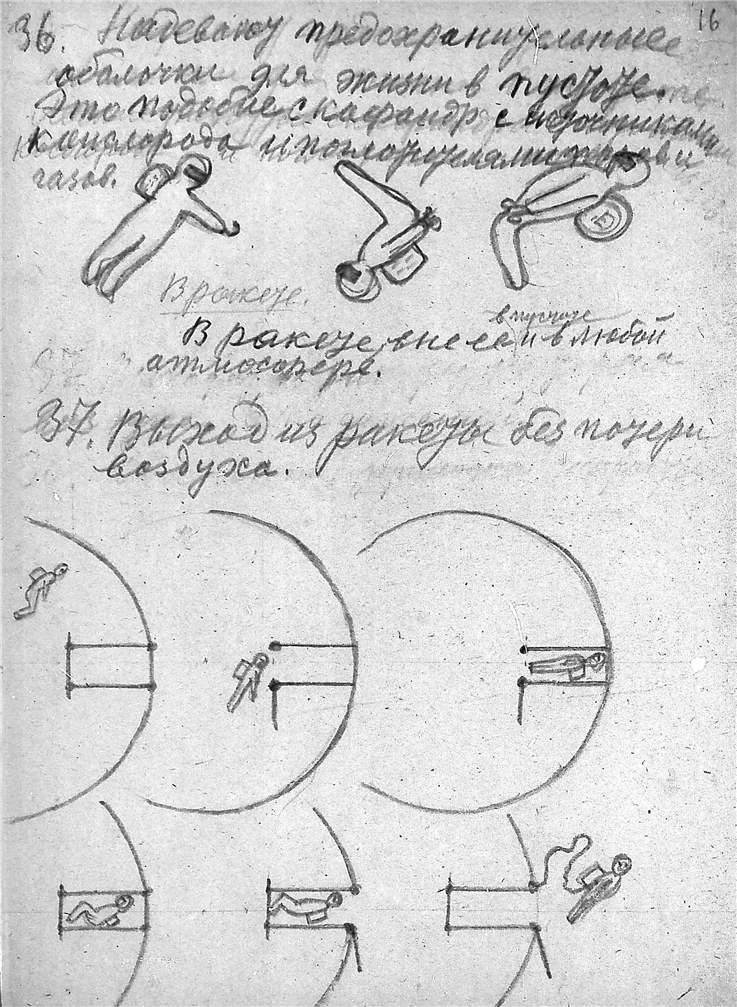 16
36. Надевают предохранительные
оболочки для жизни в пустоте.
Это подобие скафандр с источниками
кислорода и поглотителями паров и
газов.
В ракете.
в пустоте
В ракете, вне ее и в любой
атмосфере.
37. Выход из ракеты без потери
воздуха.